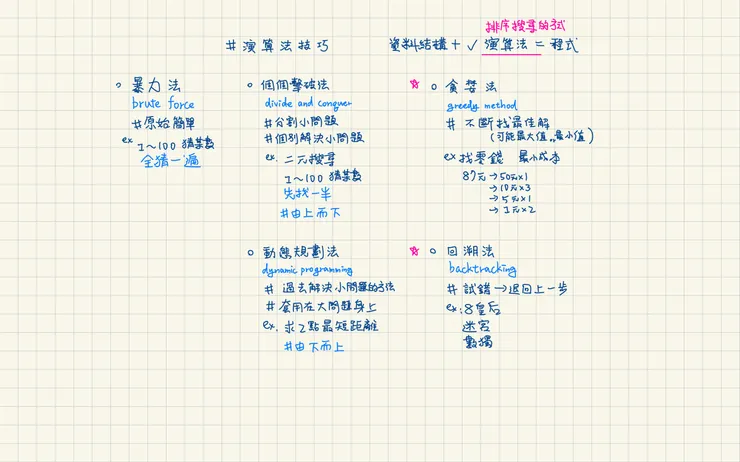 排序搜尋的方式
#演算法技巧
資料結構 + ✓ 演算法 = 程式
○ 暴力法
brute force
#原始簡單
ex 1~100 猜某數
全猜一遍
○ 個個擊破法
divide and conquer
#分割小問題
#個別解決小問題
ex. 二元搜尋
1~100 猜某數
先找一半
#由上而下
☆ ○ 貪婪法
greedy method
# 不斷找最佳解
(可能最大值 or 最小值)
ex 找零錢 最小成本
87元 → 50元×1
→ 10元×3
→ 5元×1
→ 1元×2
○ 動態規劃法
dynamic programming
# 過去解決小問題的方法
# 套用在大問題身上
ex. 求2點最短距離
#由下而上
☆ ○ 回溯法
backtracking
# 試錯 → 退回上一步
ex: 8皇后
迷宮
數獨